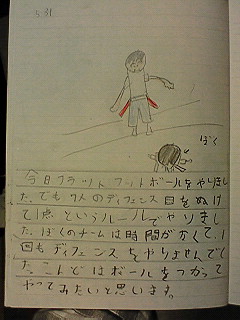 5.31
ぼく
今日フラットフットボールをやりまし
た。でも7人のディフェンス目をぬけ
て1点というルールでやりまし
た。ぼくのチームは時間がなくて、1
回もディフェンスをやりませんでし
た。こんどはボールをつかって
やってみたいと思います。